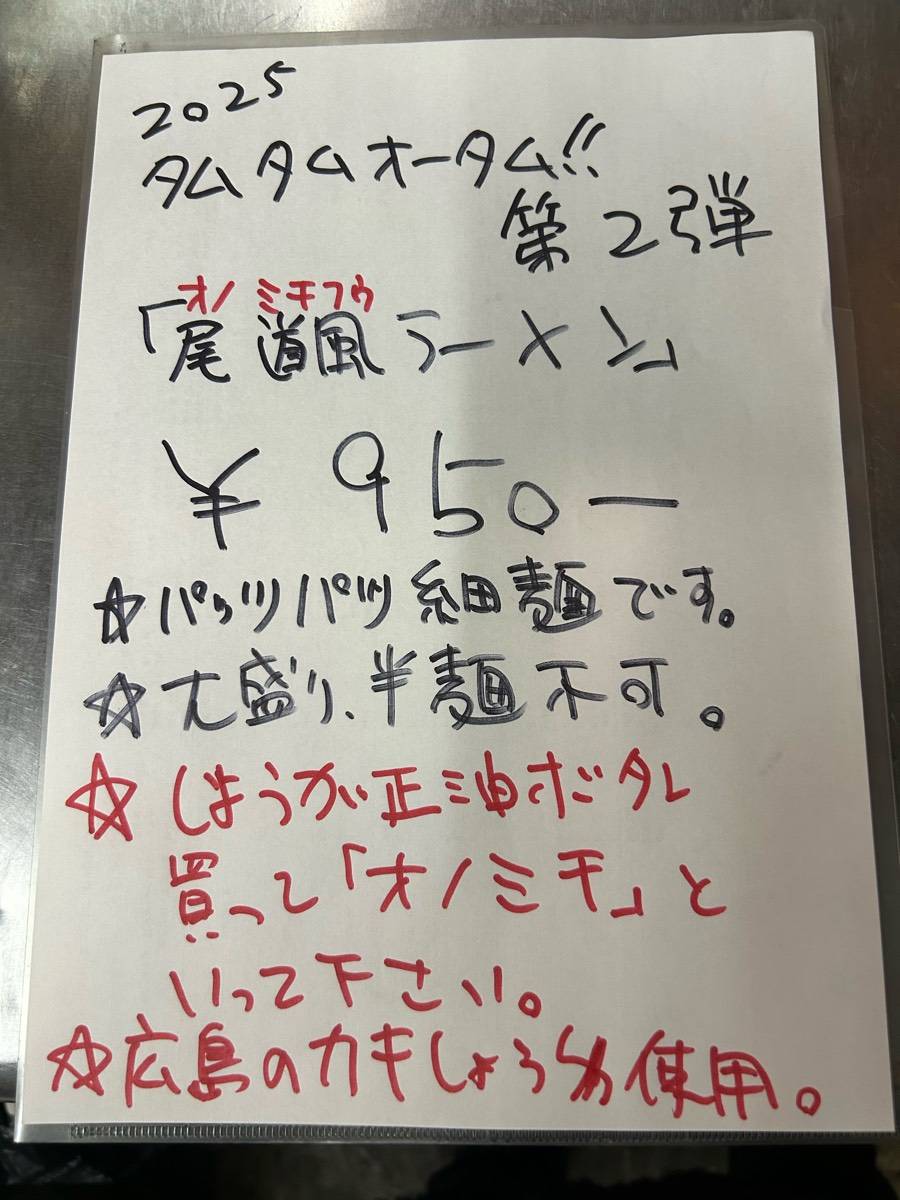 2025
タムタムオータム!!
第2弾
オノミチフウ
「尾道風ラーメン」
¥950ー
☆パッツパツ細麺です。
☆大盛り、半麺不可。
☆しょうが正油ボタン
買って「オノミチ」と
いって下さい。
☆広島のカキしょうゆ使用。